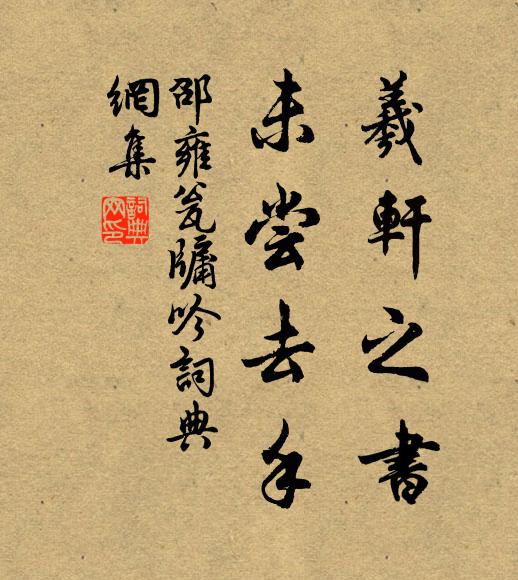 羲軒之書
未嘗去手
邵雍瓮牖吟詞典
網集
詞典
网印